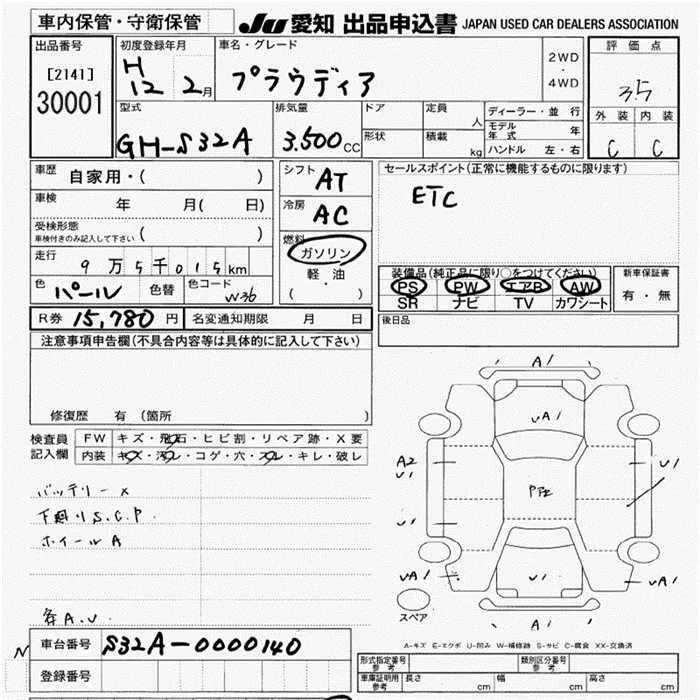 車内保管・守衛保管
JU 愛知 出品申込書 JAPAN USED CAR DEALERS ASSOCIATION
出品番号
[2141]
30001
初度登録年月
H 12 2月
車名・グレード
プラウディア
2WD
・
4WD
評価点
3.5
外装 内装
C C
型式
GH-S32A
排気量
3.500cc
ドア
形状
定員 人
積載 kg
ディーラー・並行
モデル年式 年
ハンドル 左・右
車歴 自家用・( )
車検 年 月( 日)
受検形態
車検付きのみ記入して下さい ( )
走行 9万5千015km
色 パール 色替 色コード W36
シフト AT
冷房 AC
燃料
ガソリン
・
軽油
( )
セールスポイント(正常に機能するものに限ります)
ETC
装備品(純正品に限り○をつけてください)
PS PW エアB AW
SR ナビ TV カワシート
新車保証書
有・無
R券 15,780円 名変通知期限 月 日
後日品
注意事項申告欄(不具合内容等は具体的に記入して下さい)
修復歴 有 (箇所 )
検査員記入欄
FW キズ・飛石・ヒビ割・リペア跡・X要
内装 キズ・汚レ・コゲ・穴・スレ・キレ・破レ
バッテリーX
下廻りS.C.P.
ホイールA
各A.U.
A1
UA1
A2
U1
U1
UA1
U1
UA1
A1
スペア
A-キズ E-エクボ U-凹み W-補修跡 S-サビ C-腐食 XX-交換済
車台番号 S32A-0000140
登録番号
N
形式指定番号 参考
類別区分番号 参考
車庫証明用 参考 長さ cm 幅 cm 高さ cm